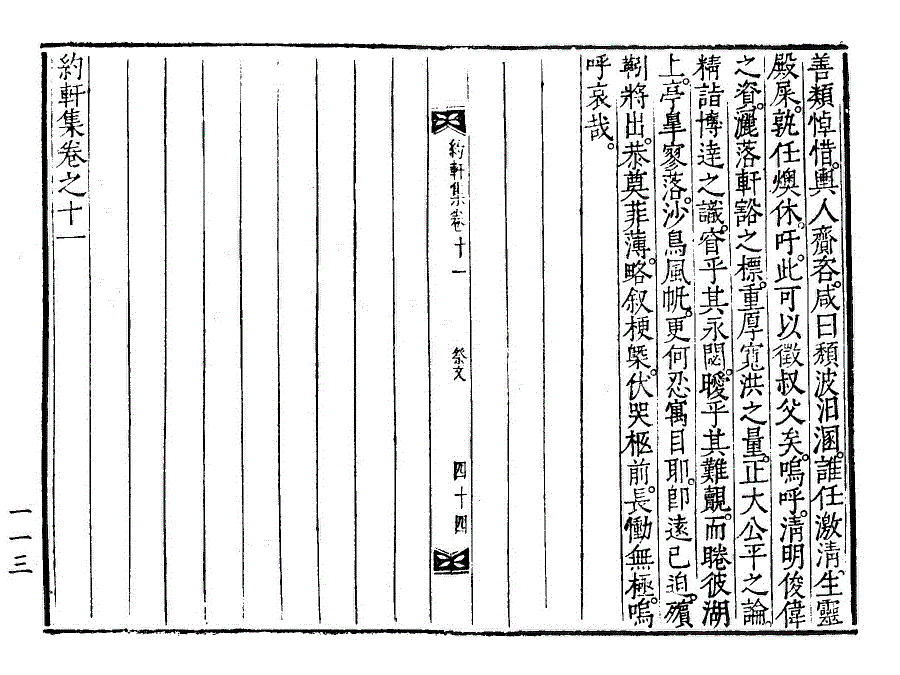 善類悼惜。輿人齎咨。咸曰頹波汨溷。誰任激淸。生靈
殿屎。孰任燠休。吁。此可以徵叔父矣。嗚呼。淸明俊偉
之資。灑落軒豁之標。重厚寬洪之量。正大公平之論。
精詣博達之識。窅乎其永閟。曖乎其難覿。而睠彼湖
上。亭皐寥落。沙鳥風帆。更何忍寓目耶。卽遠已迫。殯
靷將出。恭奠菲薄。略叙梗槩。伏哭柩前。長慟無極。嗚
呼哀哉。
約軒集卷十一
祭文
四十四
約軒集卷之十一
一一三